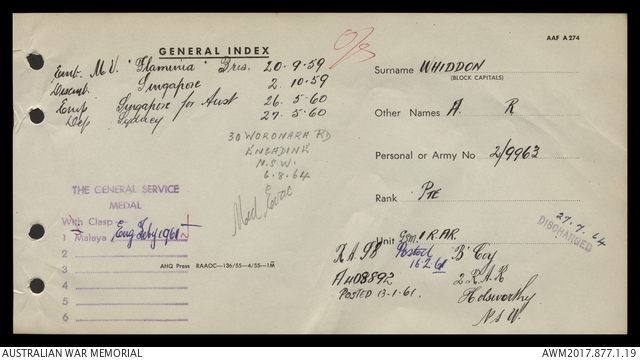 AAF A274
GENERAL INDEX
O/S
Emb. M.V. "Flaminia" Bris. 20.9.59
Disemb. Singapore 2.10.59
Emp Singapore for Aust 26.5.60
Dep Sydney 27.5.60
30 WORONARA RD
ENGADINE
N.S.W.
6.8.64
Med Evac
THE GENERAL SERVICE
MEDAL
With Clasp
1 Malaya Eng Feby 1961
2
3
4
5
6
AHQ Press RAAOC—136/55—4/55—1M
Surname WHIDDON
(BLOCK CAPITALS)
Other Names A. R
Personal or Army No 2/9963
Rank Pte
27.7.64
DISCHARGED
Unit 1 RAR.
Posted "B" Coy
16.2.61
A408892 2 R.A.R
POSTED 13.1.61. Holsworthy
N.S.W.
AUSTRALIAN WAR MEMORIAL
AWM2017.877.1.19